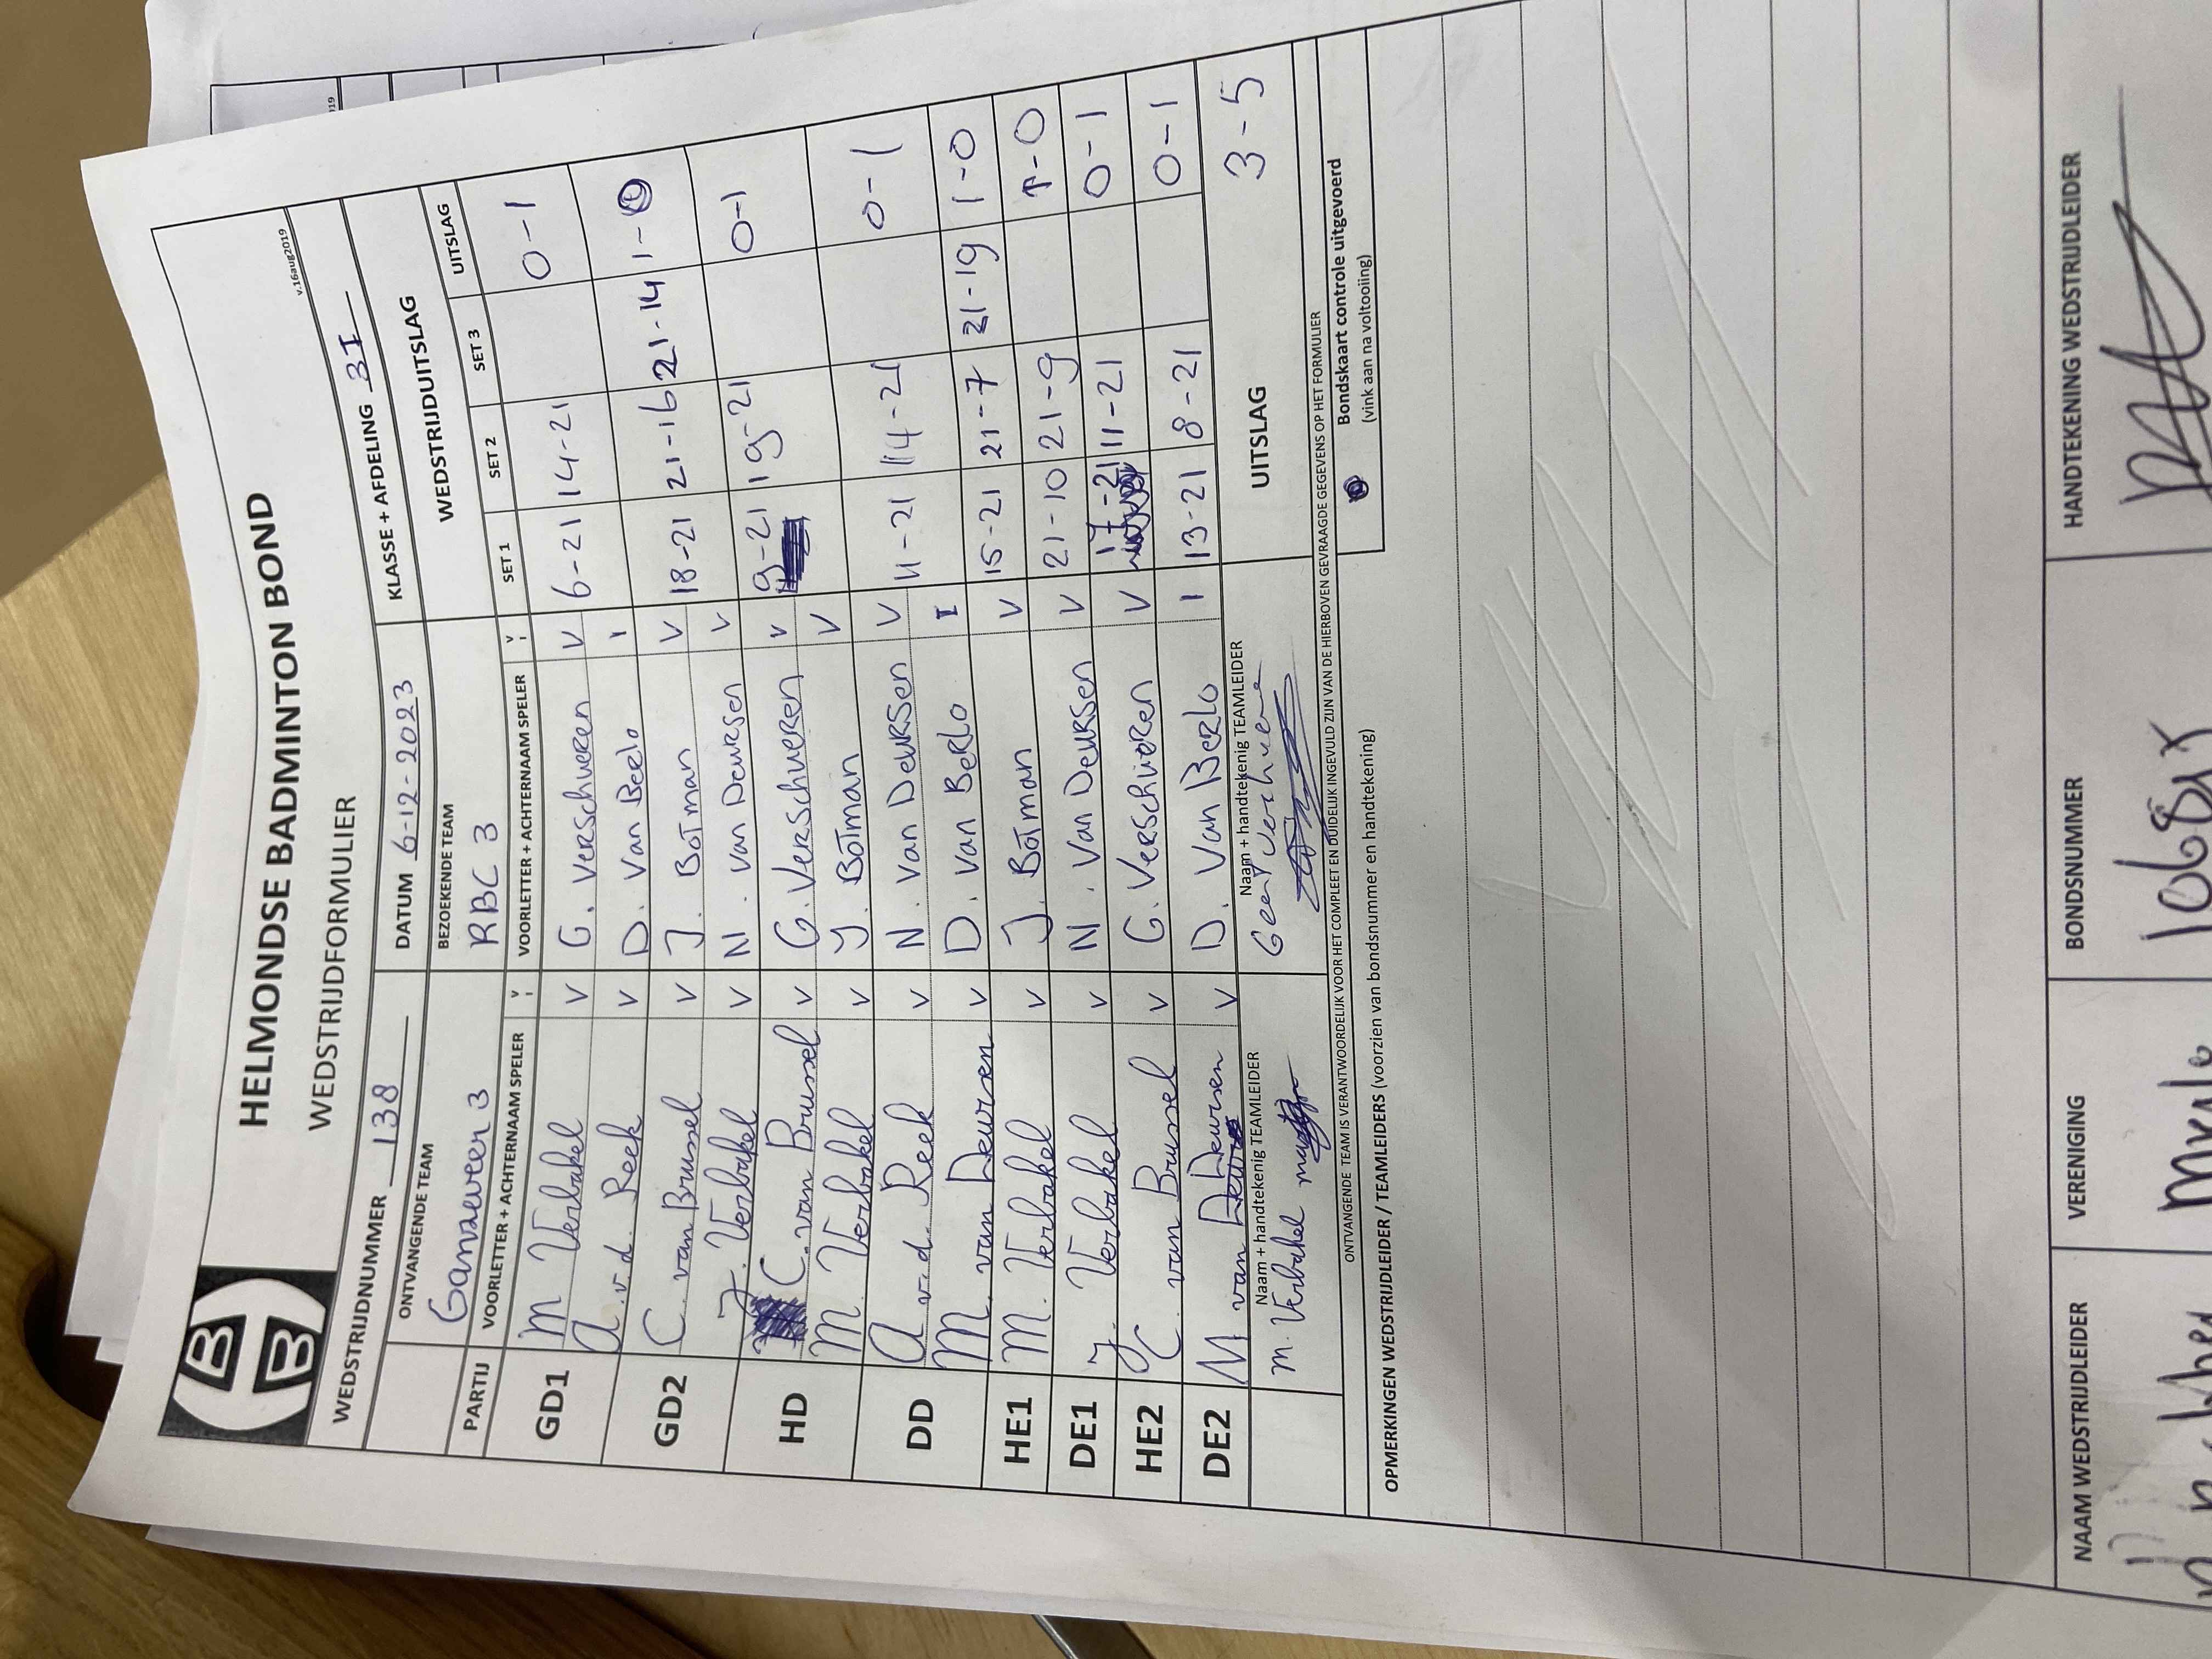 HELMONDSE BADMINTON BOND
WEDSTRIJDFORMULIER
v.16aug2019
WEDSTRIJDNUMMER 138 DATUM 6-12-2023 KLASSE + AFDELING 3I
ONTVANGENDE TEAM BEZOEKENDE TEAM WEDSTRIJDUITSLAG
Ganzeveer 3 RBC 3
PARTIJ VOORLETTER + ACHTERNAAM SPELER V I VOORLETTER + ACHTERNAAM SPELER V I SET 1 SET 2 SET 3 UITSLAG
GD1 M Verbakel V G. Verschueren V 6-21 14-21 0-1
A. v.d. Reek V D. Van Berlo I
GD2 C. van Brussel V J. Botman V 18-21 21-16 21-14 1-0
J. Verbakel V N. van Deursen V
HD C. van Brussel V G. Verschueren V 9-21 19-21 0-1
M. Verbakel V J. Botman V
DD A v.d. Reek V N. van Deursen V 11-21 14-21 0-1
M. van Deursen V D. van Berlo I
HE1 M. Verbakel V J. Botman V 15-21 21-7 21-19 1-0
DE1 J. Verbakel V N. Van Deursen V 21-10 21-9 1-0
HE2 C. van Brussel V G. Verschueren V 17-21 11-21 0-1
DE2 M van Deursen V D. Van Berlo I 13-21 8-21 0-1
Naam + handtekenig TEAMLEIDER Naam + handtekenig TEAMLEIDER UITSLAG 3-5
M. Verbakel Geert Verschueren
ONTVANGENDE TEAM IS VERANTWOORDELIJK VOOR HET COMPLEET EN DUIDELIJK INGEVULD ZIJN VAN DE HIERBOVEN GEVRAAGDE GEGEVENS OP HET FORMULIER
Bondskaart controle uitgevoerd
(vink aan na voltooiing)
OPMERKINGEN WEDSTRIJDLEIDER / TEAMLEIDERS (voorzien van bondsnummer en handtekening)
NAAM WEDSTRIJDLEIDER VERENIGING BONDSNUMMER HANDTEKENING WEDSTRIJDLEIDER